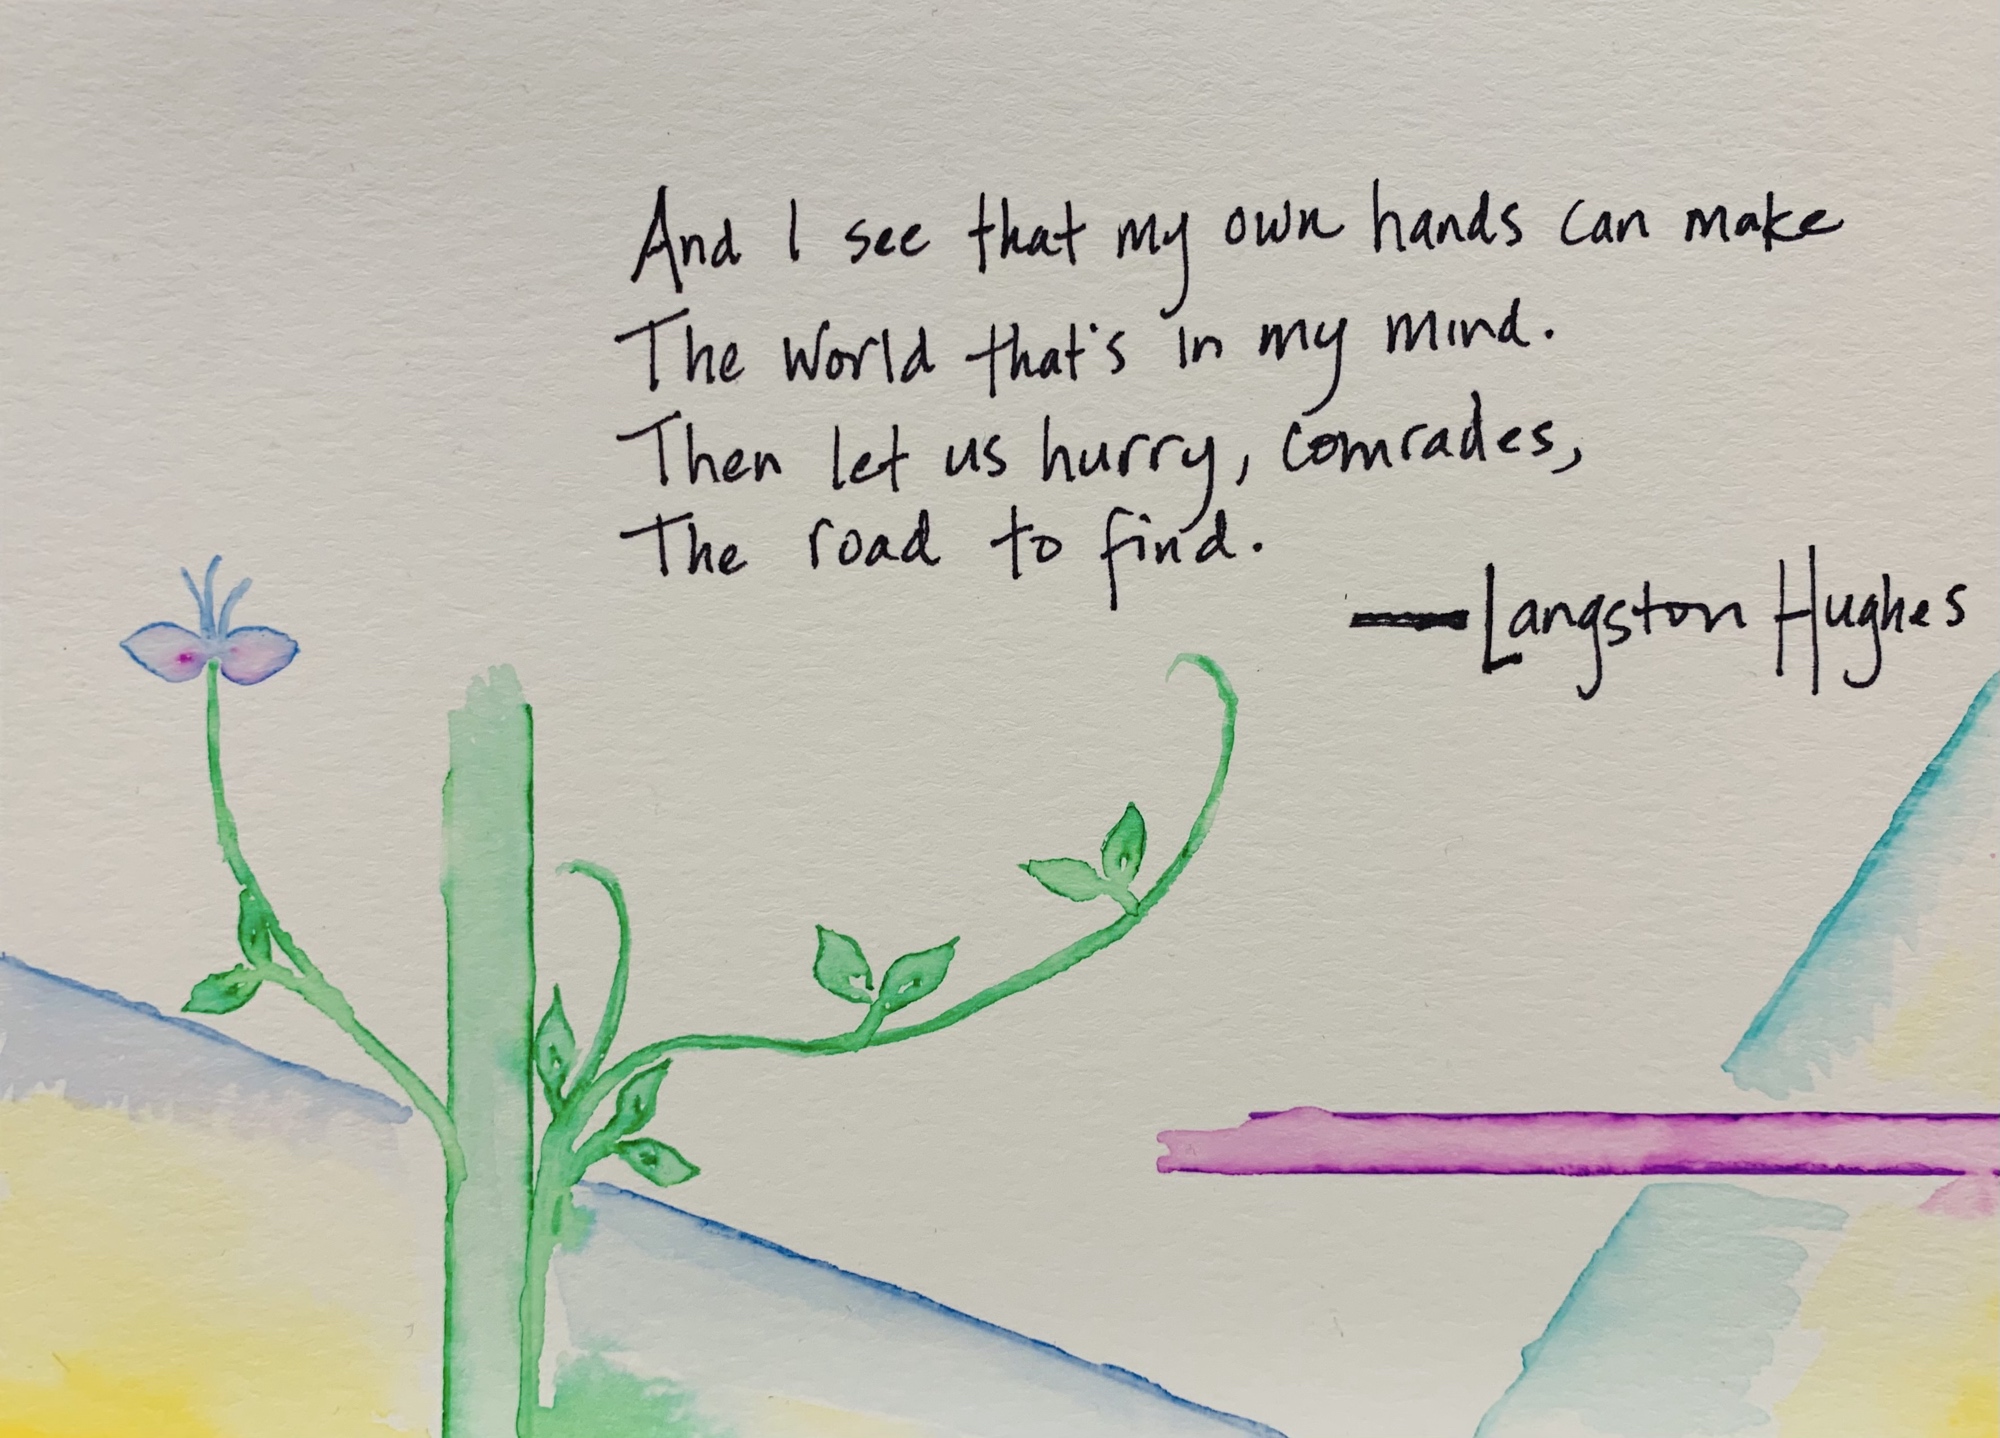 And I see that my own hands can make
The world that's in my mind.
Then let us hurry, comrades,
The road to find.
— Langston Hughes